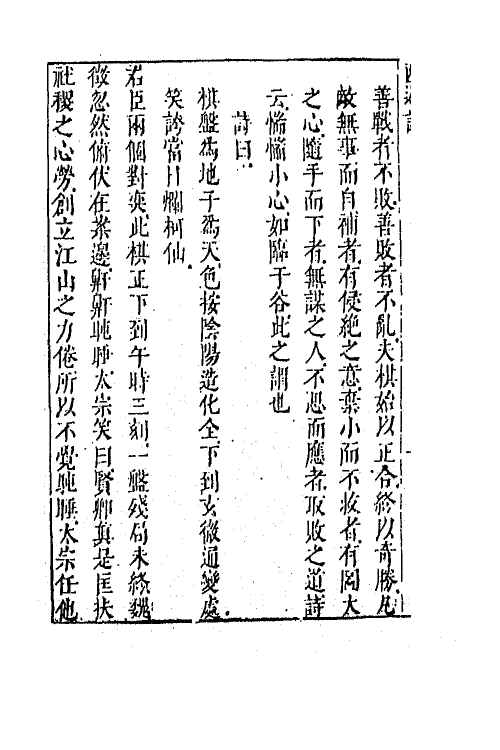 善戰者不敗善敗者不亂夫棋始以正合終以奇勝凡
敵無事而自補者有侵絕之意棄小而不救者有圖大
之心隨手而下者無謀之人不思而應者取敗之道詩
云惴惴小心如臨于谷此之謂也
詩曰
棋盤為地子為天色按陰陽造化全下到玄微通變處
笑誇當日爛柯仙
君臣兩個對奕此棋正下到午時三刻一盤殘局未終魏
徵忽然俯伏在案邊鼾鼾盹睡太宗笑曰賢卿真是匡扶
社稷之心勞創立江山之力倦所以不覺盹睡太宗任他